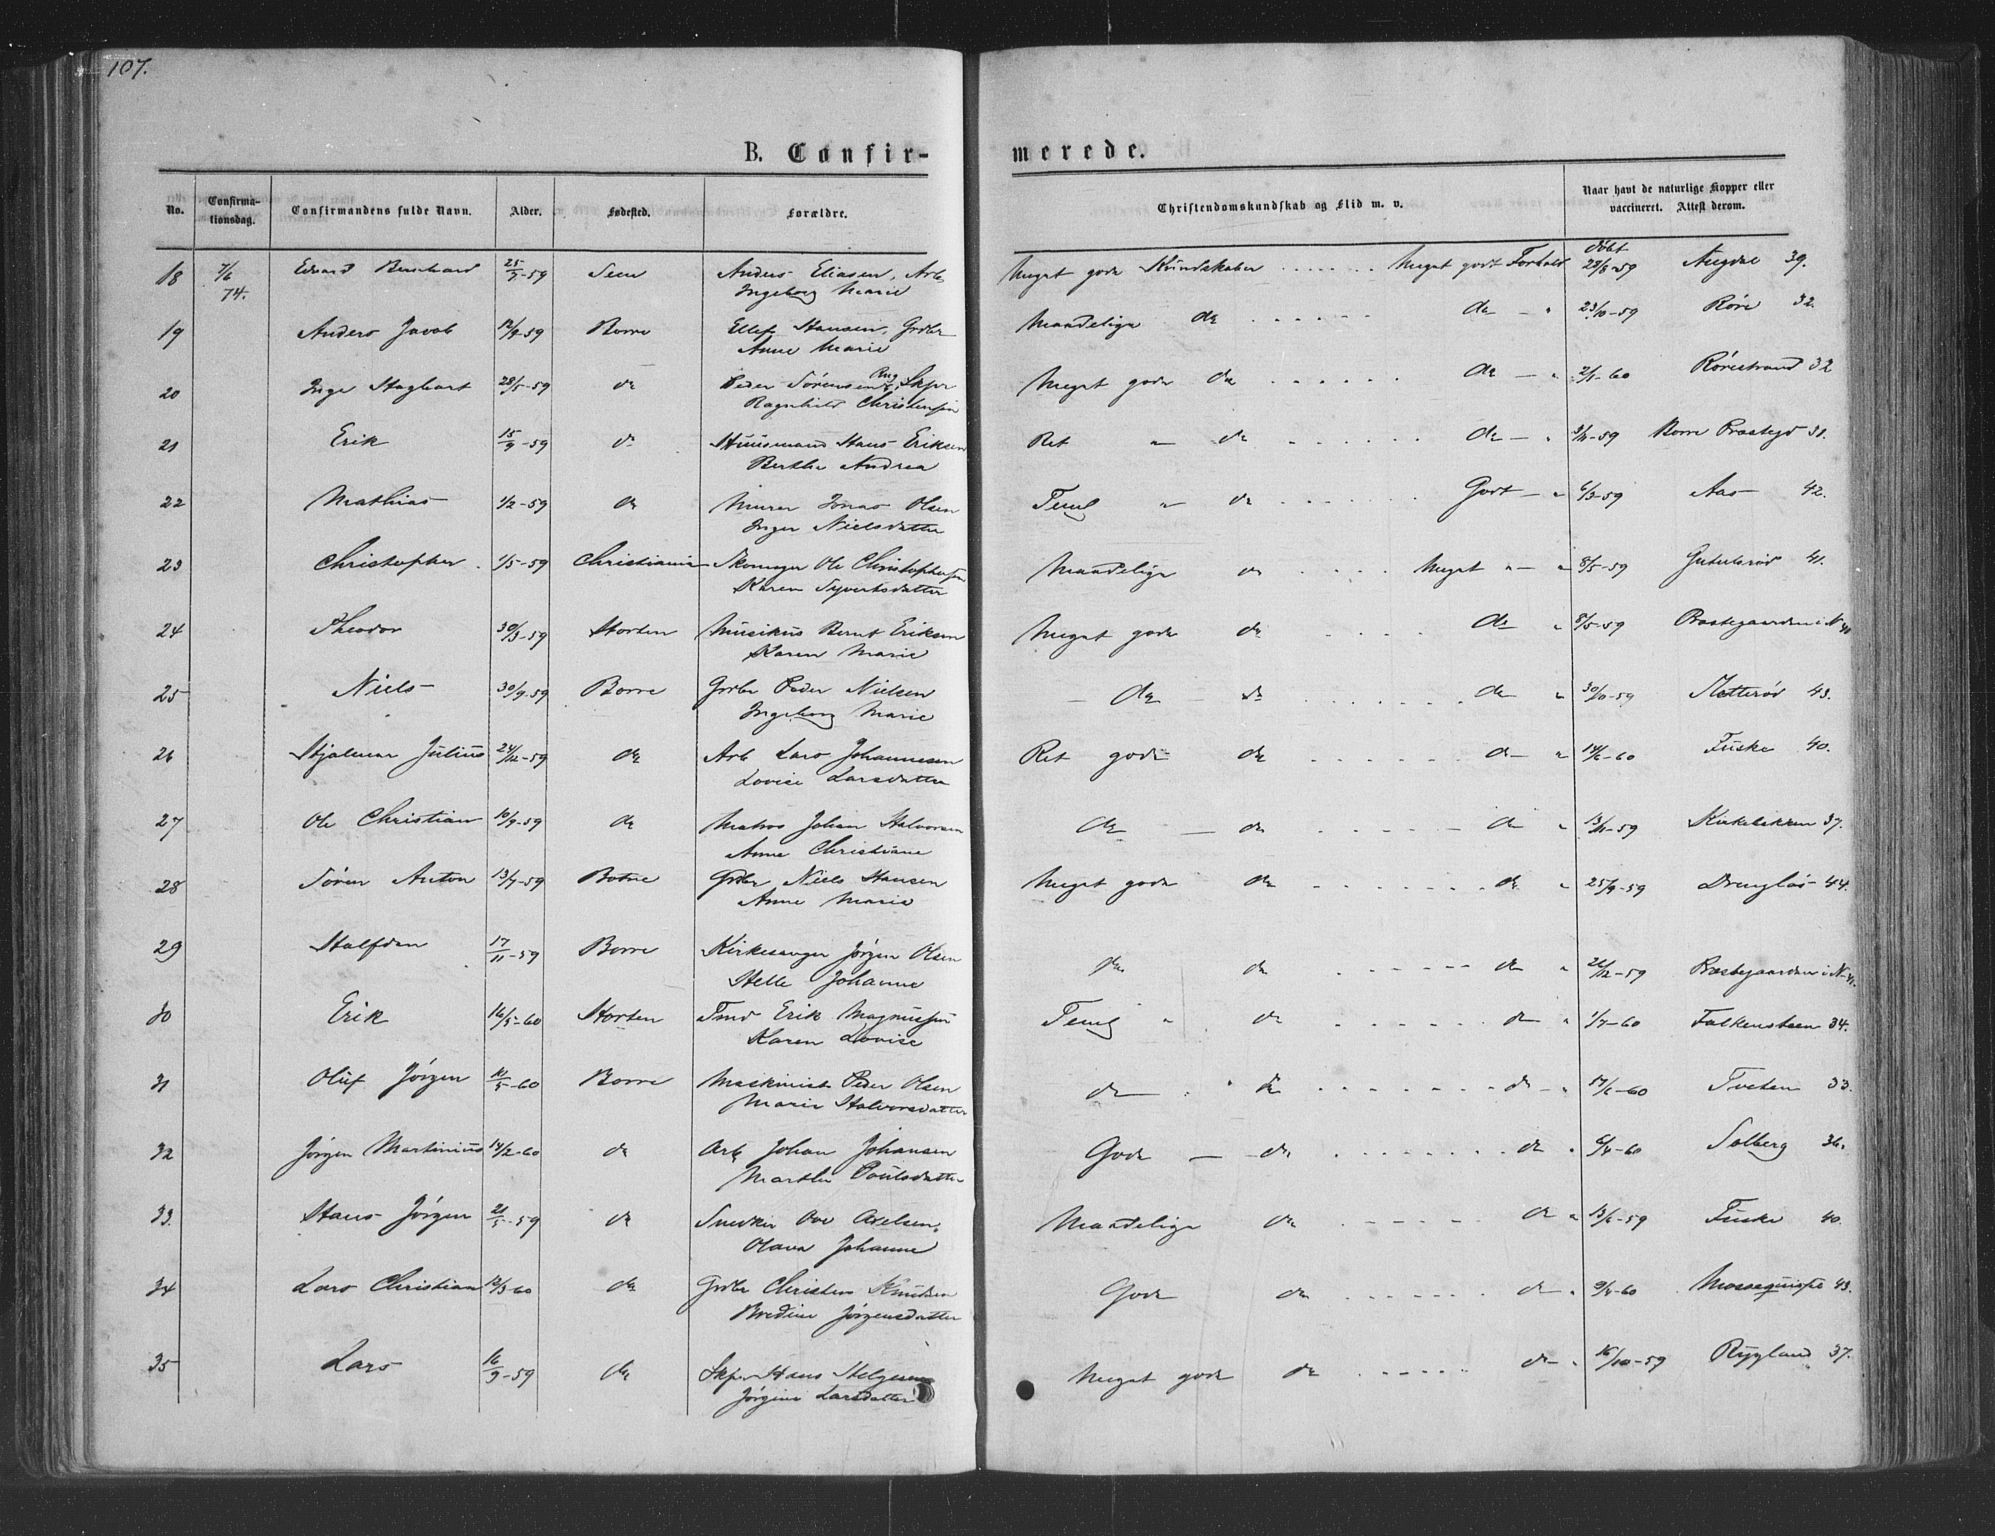 107.
B. Confir-
merede.
No. Confirma-tionsdag. Confirmandens fulde Navn. Alder. Fødested. Forældre. Christendomskundskab og Flid m. v. Naar havt de naturlige Kopper eller vaccineret. Attest derom.
18 7/6 74. Edvard Bernhard 25/7-59 Seem Anders Eliasen, Arb Meget gode Kundskaber Meget godt Forhold døbt 28/8-59 39.
Ingeborg Marie
19 Anders Jacob 12/9-59 Borre Ellef Hansen, Grdbr Maadelige do do 23/10-59 Røre 32.
Anne Marie
20 Inge Hagbart 28/5-59 do Peder Sørensen Skpr Meget gode do do 2/1-60 Rørestrand 32
Ragnhild Christensen
21 Erik 15/9-59 do Huusmand Hans Eriksen Ret " do do 3/11-59 Borre Præstegd 31.
Berthe Andrea
22 Mathias 1/2-59 do Murer Jonas Olsen Temlg " do Godt 6/3-59 Aas 42.
Inger Nielsdatter
23 Christopher 1/5-59 Christiania Skomager Ole Christophersen Maadelige do Meget " 8/5-59 41.
Karen Syvertsdatter
24 Theodor 30/3-59 Horten Musikus Bernt Eriksen Meget gode do do 8/5-59 Præstegaarden i N 41
Karen Marie
25 Niels 30/9-59 Borre Grdbr Peder Nielsen do do do 30/10-59 43.
Ingeborg Marie
26 Hjalmar Julius 24/12-59 do Arb Lars Johannesen Ret gode do do 60 Fuske 40.
Lovise Larsdatter
27 Ole Christian 10/9-59 do Matros Johan Halvorsen do do do 13/11-59 37.
Anne Christiane
28 Søren Anton 13/7-59 Botne Grdbr Niels Hansen Meget gode do do 25/9-59 44.
Anne Marie
29 Halfdan 17/11-59 Borre Kirkesanger Jørgen Olsen do do do 26/12-59 Præstegaarden i N 41.
Helle Johanne
30 Erik 16/5-60 Horten Tmd Erik Magnussen Temlg " do do 1/7-60 Falkensteen 34.
Karen Lovise
31 Oluf Jørgen 10/5-60 Borre Maskinist Peder Olsen do do do 17/6-60 Tveten 33.
Marie Halvorsdatter
32 Jørgen Martinius 14/2-60 do Arb Johan Johansen Gode do do 6/4-60 Solberg 36.
Marthe Poulsdatter
33. Hans Jørgen 21/5-59 do Snedker Ove Axelsen, Maadelige do do 13/6-59 Fuske 40.
Olava Johanne
34 Lars Christian 12/3-60 do Grdbr Christen Knudsen Gode do do 9/4-60 43.
Bredine Jørgensdatter
35 Lars 16/9-59 do Skpr Hans Helgesen Meget gode do do 16/10-59 Rygland 37.
Jørgine Larsdatter